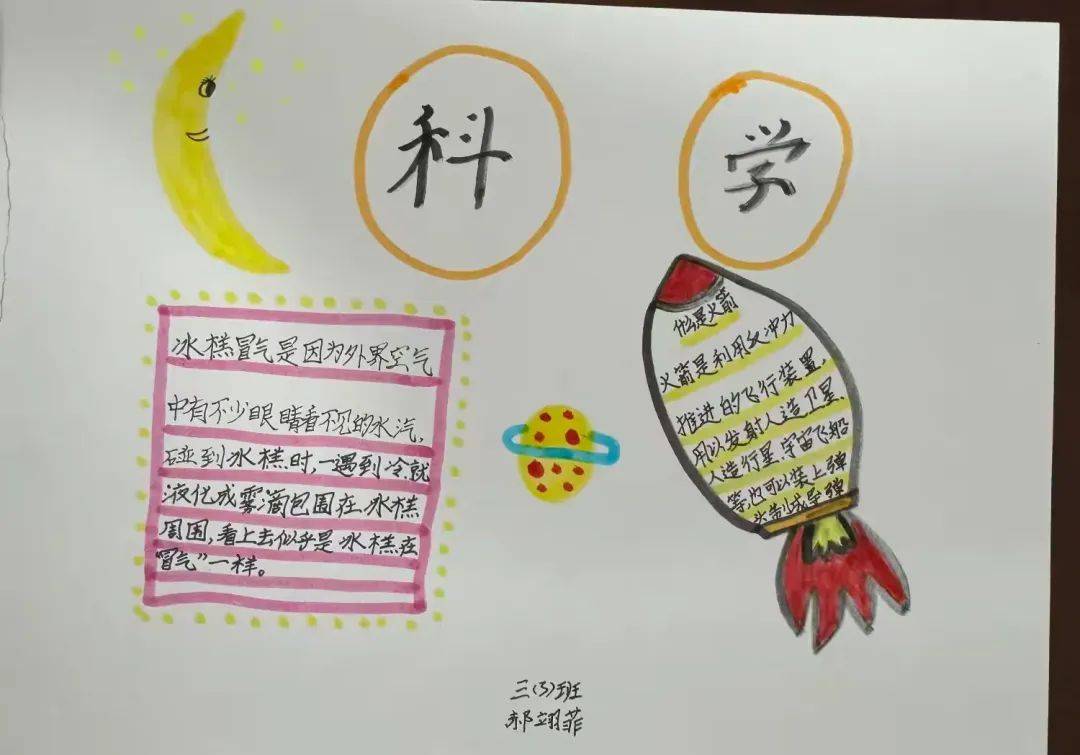 科 学
冰糕冒气是因为外界空气
中有不少眼睛看不见的水汽，
碰到冰糕时，一遇到冷就
液化成雾滴包围在冰糕
周围，看上去似乎是冰糕在
“冒气”一样。
什么是火箭
火箭是利用反冲力
推进的飞行装置，
用以发射人造卫星、
人造行星、宇宙飞船
等，也可以装上弹
头制成导弹
三（3）班
郝翊菲